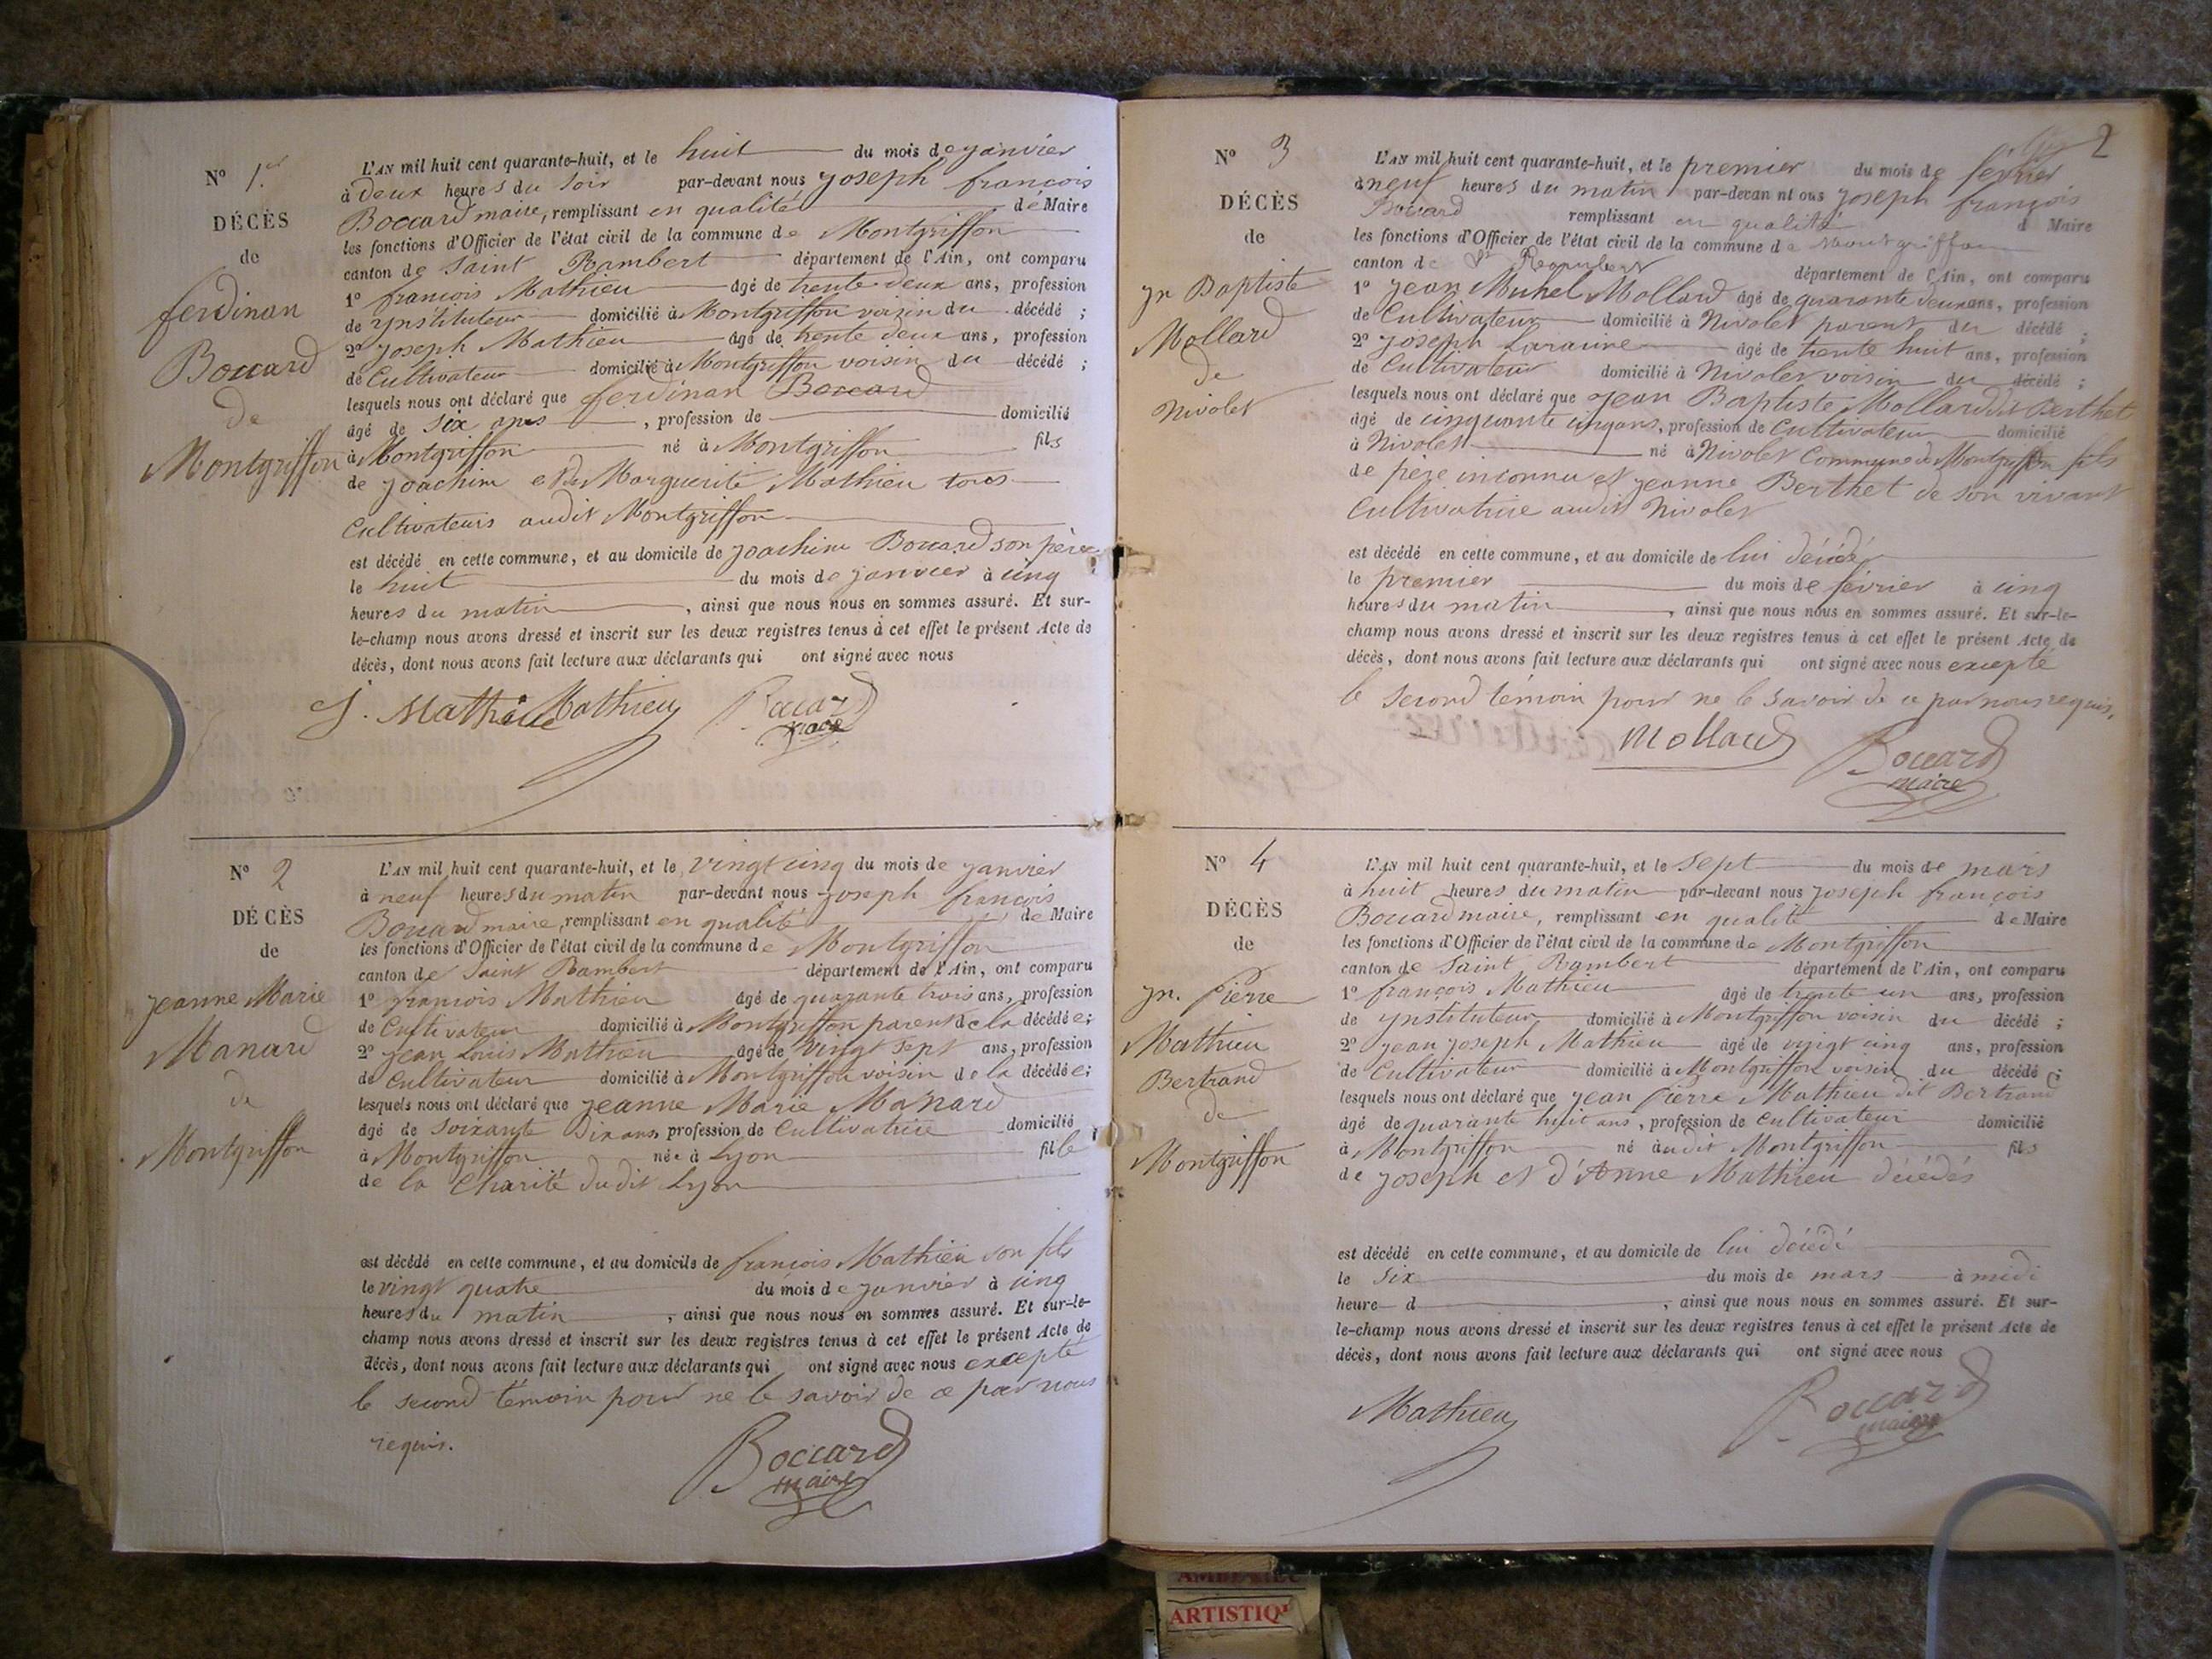 N° 1.er
DÉCÈS
de
ferdinan
Boccard
de
Montgriffon
L'AN mil huit cent quarante-huit, et le huit du mois de janvier
à deux heures du soir par-devant nous joseph françois
Boccard maire, remplissant en qualité de Maire
les fonctions d'Officier de l'état civil de la commune de Montgriffon
canton de Saint Rambert département de l'Ain, ont comparu
1° francois Mathieu âgé de trente deux ans, profession
de ynstituteur domicilié à Montgriffon voisin du décédé ;
2° joseph Mathieu âgé de trente deux ans, profession
de Cultivateur domicilié à Montgriffon voisin du décédé ;
lesquels nous ont déclaré que ferdinan Boccard
âgé de six ans , profession de domicilié
à Montgriffon né à Montgriffon fils
de joachim et de Marguerite Mathieu tous
Cultivateurs audit Montgriffon
est décédé en cette commune, et au domicile de joachim Boccard son père
le huit du mois de janvier à cinq
heures du matin , ainsi que nous nous en sommes assuré. Et sur-
le-champ nous avons dressé et inscrit sur les deux registres tenus à cet effet le présent Acte de
décès, dont nous avons fait lecture aux déclarants qui ont signé avec nous
J. Mathieu Mathieu Boccard
maire
N° 2
DÉCÈS
de
jeanne Marie
Manard
de
Montgriffon
L'AN mil huit cent quarante-huit, et le vingt cinq du mois de janvier
à neuf heures du matin par-devant nous joseph françois
Boccard maire, remplissant en qualité de Maire
les fonctions d'Officier de l'état civil de la commune de Montgriffon
canton de Saint Rambert département de l'Ain, ont comparu
1° francois Mathieu âgé de quarante trois ans, profession
de Cultivateur domicilié à Montgriffon parent de la décédée;
2° jean Louis Mathieu âgé de vingt sept ans, profession
de Cultivateur domicilié à Montgriffon voisin de la décédée;
lesquels nous ont déclaré que jeanne Marie Manard
âgé de soixante Dix ans, profession de Cultivatrice domicilié
à Montgriffon née à Lyon fille
de la Charité dudit Lyon
est décédé en cette commune, et au domicile de francois Mathieu son fils
le vingt quatre du mois de janvier à cinq
heures du matin , ainsi que nous nous en sommes assuré. Et sur-le-
champ nous avons dressé et inscrit sur les deux registres tenus à cet effet le présent Acte de
décès, dont nous avons fait lecture aux déclarants qui ont signé avec nous excepté
le second témoin pour ne le savoir de ce par nous
requis.
Boccard
maire
2
N° 3
DÉCÈS
de
jn Baptiste
Mollard
de
Nivolet
L'AN mil huit cent quarante-huit, et le premier du mois de février
à neuf heures du matin par-devant nous joseph françois
Boccard remplissant en qualité d Maire
les fonctions d'Officier de l'état civil de la commune de Montgriffon
canton de St Rambert département de l'Ain, ont comparu
1° jean Michel Mollard âgé de quarante deux ans, profession
de Cultivateur domicilié à Nivolet parent du décédé ;
2° joseph Laraure âgé de trente huit ans, profession
de Cultivateur domicilié à Nivolet voisin du décédé ;
lesquels nous ont déclaré que jean Baptiste Mollard dit Berthet
âgé de cinquante cinq ans, profession de Cultivateur domicilié
à Nivolet né à Nivolet Commune de Montgriffon fils
de père inconnu et jeanne Berthet de son vivant
Cultivatrice audit Nivolet
est décédé en cette commune, et au domicile de lui décédé
le premier du mois de février à cinq
heures du matin , ainsi que nous nous en sommes assuré. Et sur-le-
champ nous avons dressé et inscrit sur les deux registres tenus à cet effet le présent Acte de
décès, dont nous avons fait lecture aux déclarants qui ont signé avec nous excepté
le second témoin pour ne le savoir de ce par nous requis.
Mollard Boccard
maire
N° 4
DÉCÈS
de
jn. Pierre
Mathieu
Bertrand
de
Montgriffon
L'AN mil huit cent quarante-huit, et le sept du mois de mars
à huit heures du matin par-devant nous joseph françois
Boccard maire, remplissant en qualité de Maire
les fonctions d'Officier de l'état civil de la commune de Montgriffon
canton de Saint Rambert département de l'Ain, ont comparu
1° françois Mathieu âgé de trente un ans, profession
de ynstituteur domicilié à Montgriffon voisin du décédé ;
2° jean joseph Mathieu âgé de vingt cinq ans, profession
de Cultivateur domicilié à Montgriffon voisin du décédé ;
lesquels nous ont déclaré que jean Pierre Mathieu dit Bertrand
âgé de quarante huit ans, profession de cultivateur domicilié
à Montgriffon né audit Montgriffon fils
de joseph et d'Anne Mathieu décédés
est décédé en cette commune, et au domicile de lui décédé
le six du mois de mars à midi
heure d , ainsi que nous nous en sommes assuré. Et sur-
le-champ nous avons dressé et inscrit sur les deux registres tenus à cet effet le présent Acte de
décès, dont nous avons fait lecture aux déclarants qui ont signé avec nous
Mathieu Boccard
maire
ARTISTIQ